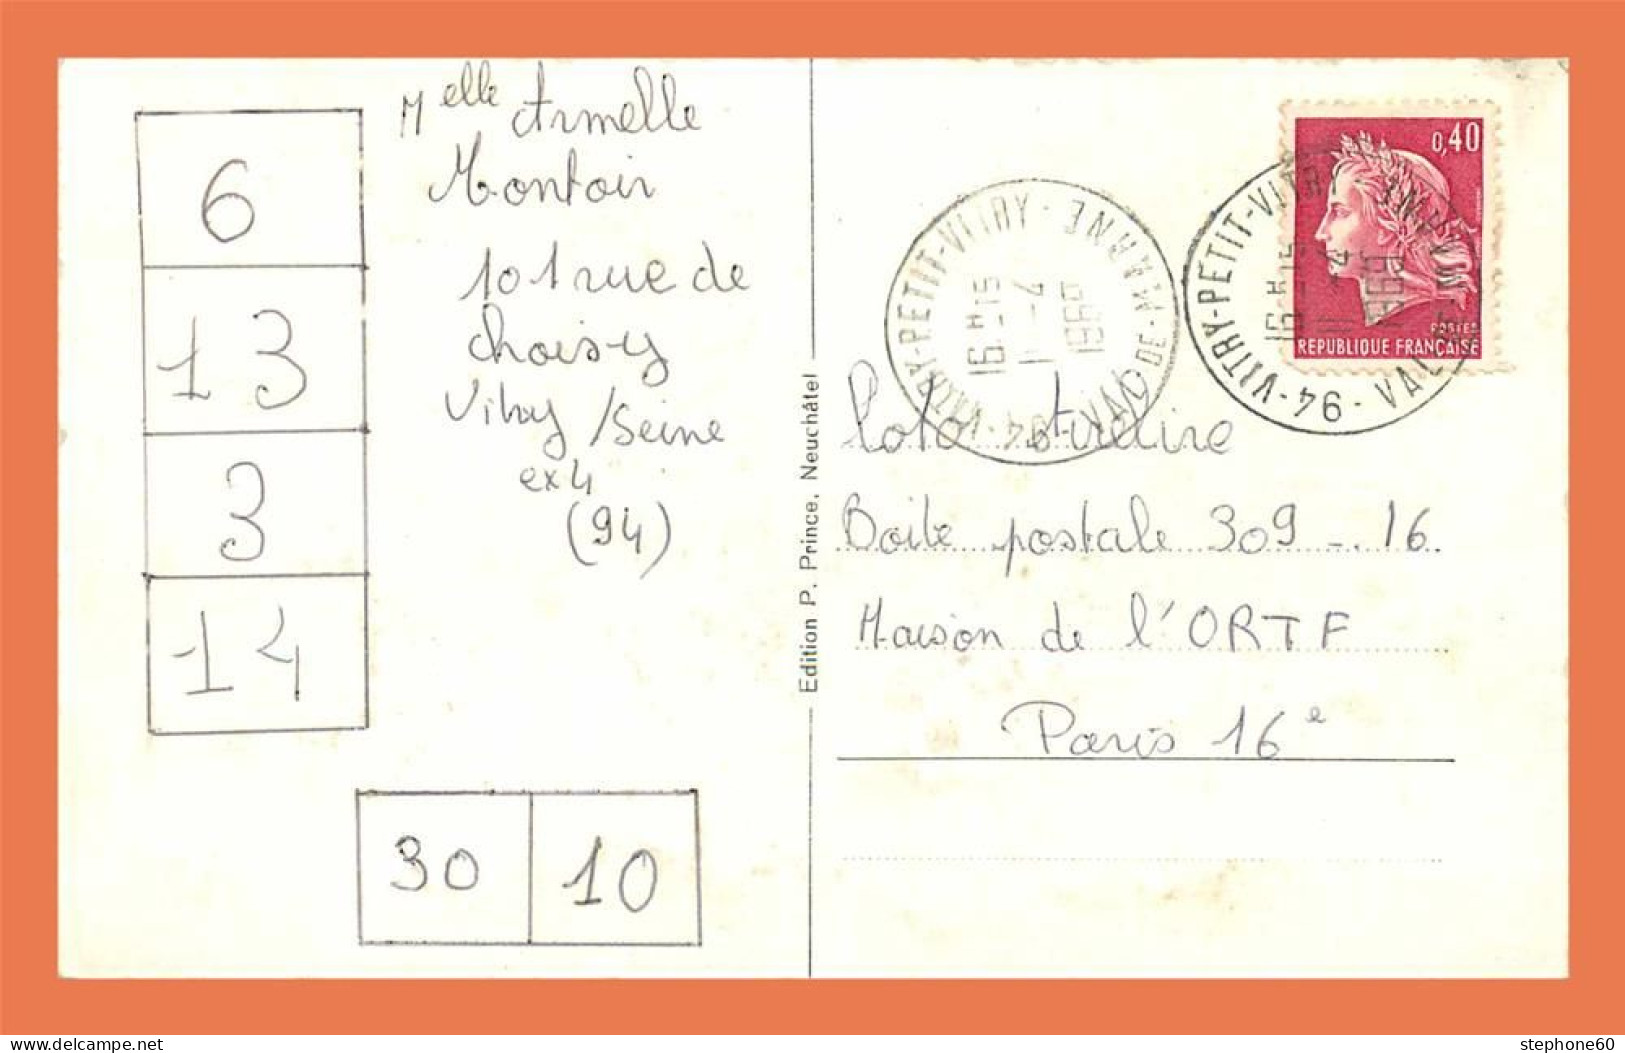 Melle Armelle
Montoir
101 rue de
choisy
Vitry /Seine
ex 4
(94)
6
13
3
14
30
10
Edition P. Prince, Neuchâtel
94 - VITRY-PETIT-VITRY - VAL-DE-MARNE
16H15
11-4
1969
0,40
POSTES
REPUBLIQUE FRANÇAISE
94 - VITRY-PETIT-VITRY
16H15
11-4
1969
Boite postale 309 - 16
Maison de l'ORTF
Paris 16e
delcampe.net
stephone60